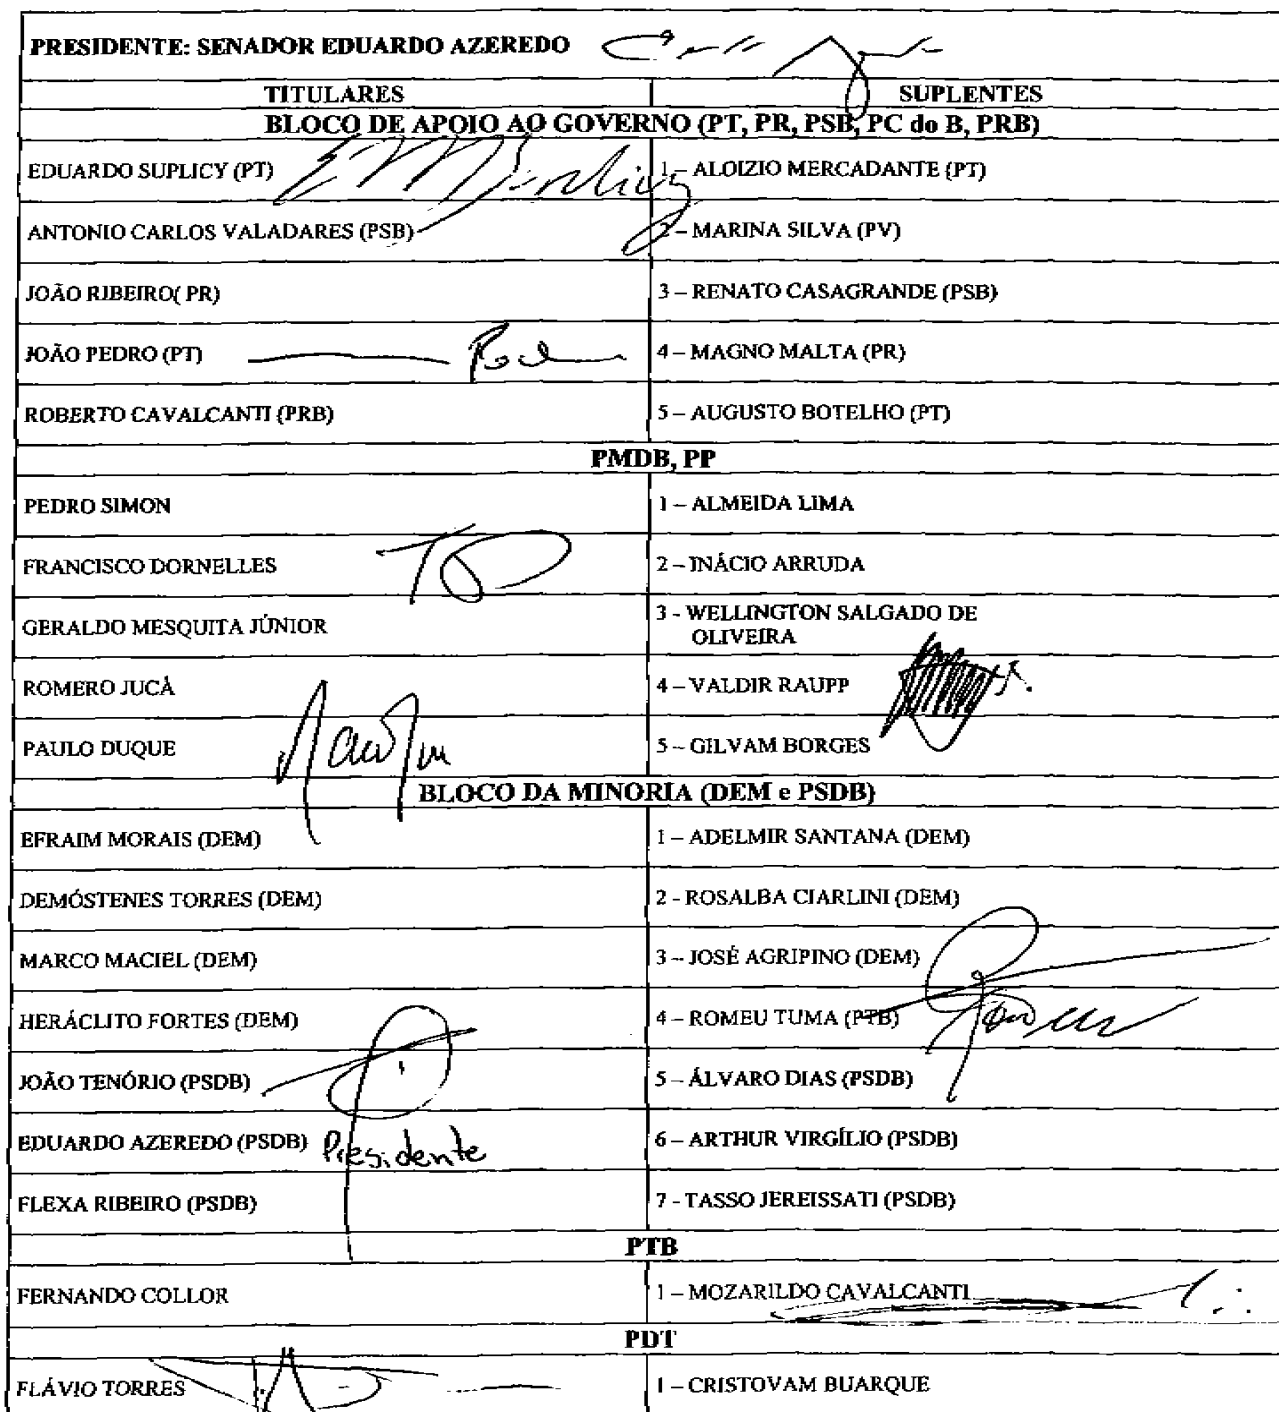 PRESIDENTE: SENADOR EDUARDO AZEREDO
TITULARES SUPLENTES
BLOCO DE APOIO AO GOVERNO (PT, PR, PSB, PC do B, PRB)
EDUARDO SUPLICY (PT) 1 – ALOIZIO MERCADANTE (PT)
ANTONIO CARLOS VALADARES (PSB) 2 – MARINA SILVA (PV)
JOÃO RIBEIRO( PR) 3 – RENATO CASAGRANDE (PSB)
JOÃO PEDRO (PT) 4 – MAGNO MALTA (PR)
ROBERTO CAVALCANTI (PRB) 5 – AUGUSTO BOTELHO (PT)
PMDB, PP
PEDRO SIMON 1 – ALMEIDA LIMA
FRANCISCO DORNELLES 2 – INÁCIO ARRUDA
GERALDO MESQUITA JÚNIOR 3 - WELLINGTON SALGADO DE
OLIVEIRA
ROMERO JUCÁ 4 – VALDIR RAUPP
PAULO DUQUE 5 – GILVAM BORGES
BLOCO DA MINORIA (DEM e PSDB)
EFRAIM MORAIS (DEM) 1 – ADELMIR SANTANA (DEM)
DEMÓSTENES TORRES (DEM) 2 - ROSALBA CIARLINI (DEM)
MARCO MACIEL (DEM) 3 – JOSÉ AGRIPINO (DEM)
HERÁCLITO FORTES (DEM) 4 – ROMEU TUMA (PTB)
JOÃO TENÓRIO (PSDB) 5 – ÁLVARO DIAS (PSDB)
EDUARDO AZEREDO (PSDB) Presidente 6 – ARTHUR VIRGÍLIO (PSDB)
FLEXA RIBEIRO (PSDB) 7 - TASSO JEREISSATI (PSDB)
PTB
FERNANDO COLLOR 1 – MOZARILDO CAVALCANTI
PDT
FLÁVIO TORRES 1 – CRISTOVAM BUARQUE